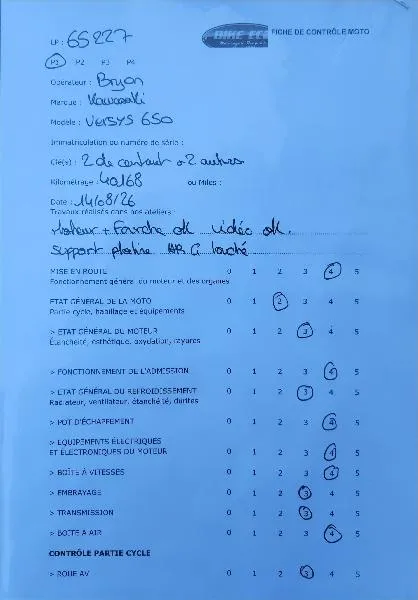 BIKE ECO
FICHE DE CONTRÔLE MOTO
LP : 65227
P1 P2 P3 P4
Opérateur : Bryan
Marque : Kawasaki
Modèle : Versys 650
Immatriculation ou numéro de série :
Clé(s) : 2 de contact + 2 autres
Kilométrage : 40168 ou Miles :
Date : 14/08/26
Travaux réalisés dans nos ateliers :
Moteur + Fourche ok vidéo ok.
support platine AR G touché
MISE EN ROUTE 0 1 2 3 4 5
Fonctionnement général du moteur et des organes
ETAT GÉNÉRAL DE LA MOTO 0 1 2 3 4 5
Partie cycle, habillage et équipements
> ETAT GÉNÉRAL DU MOTEUR 0 1 2 3 4 5
Étanchéité, esthétique, oxydation, rayures
> FONCTIONNEMENT DE L'ADMISSION 0 1 2 3 4 5
> ETAT GÉNÉRAL DU REFROIDISSEMENT 0 1 2 3 4 5
Radiateur, ventilateur, étanchéité, durites
> POT D'ÉCHAPPEMENT 0 1 2 3 4 5
> EQUIPEMENTS ÉLECTRIQUES
ET ÉLECTRONIQUES DU MOTEUR 0 1 2 3 4 5
> BOÎTE À VITESSES 0 1 2 3 4 5
> EMBRAYAGE 0 1 2 3 4 5
> TRANSMISSION 0 1 2 3 4 5
> BOITE À AIR 0 1 2 3 4 5
CONTRÔLE PARTIE CYCLE
> ROUE AV 0 1 2 3 4 5